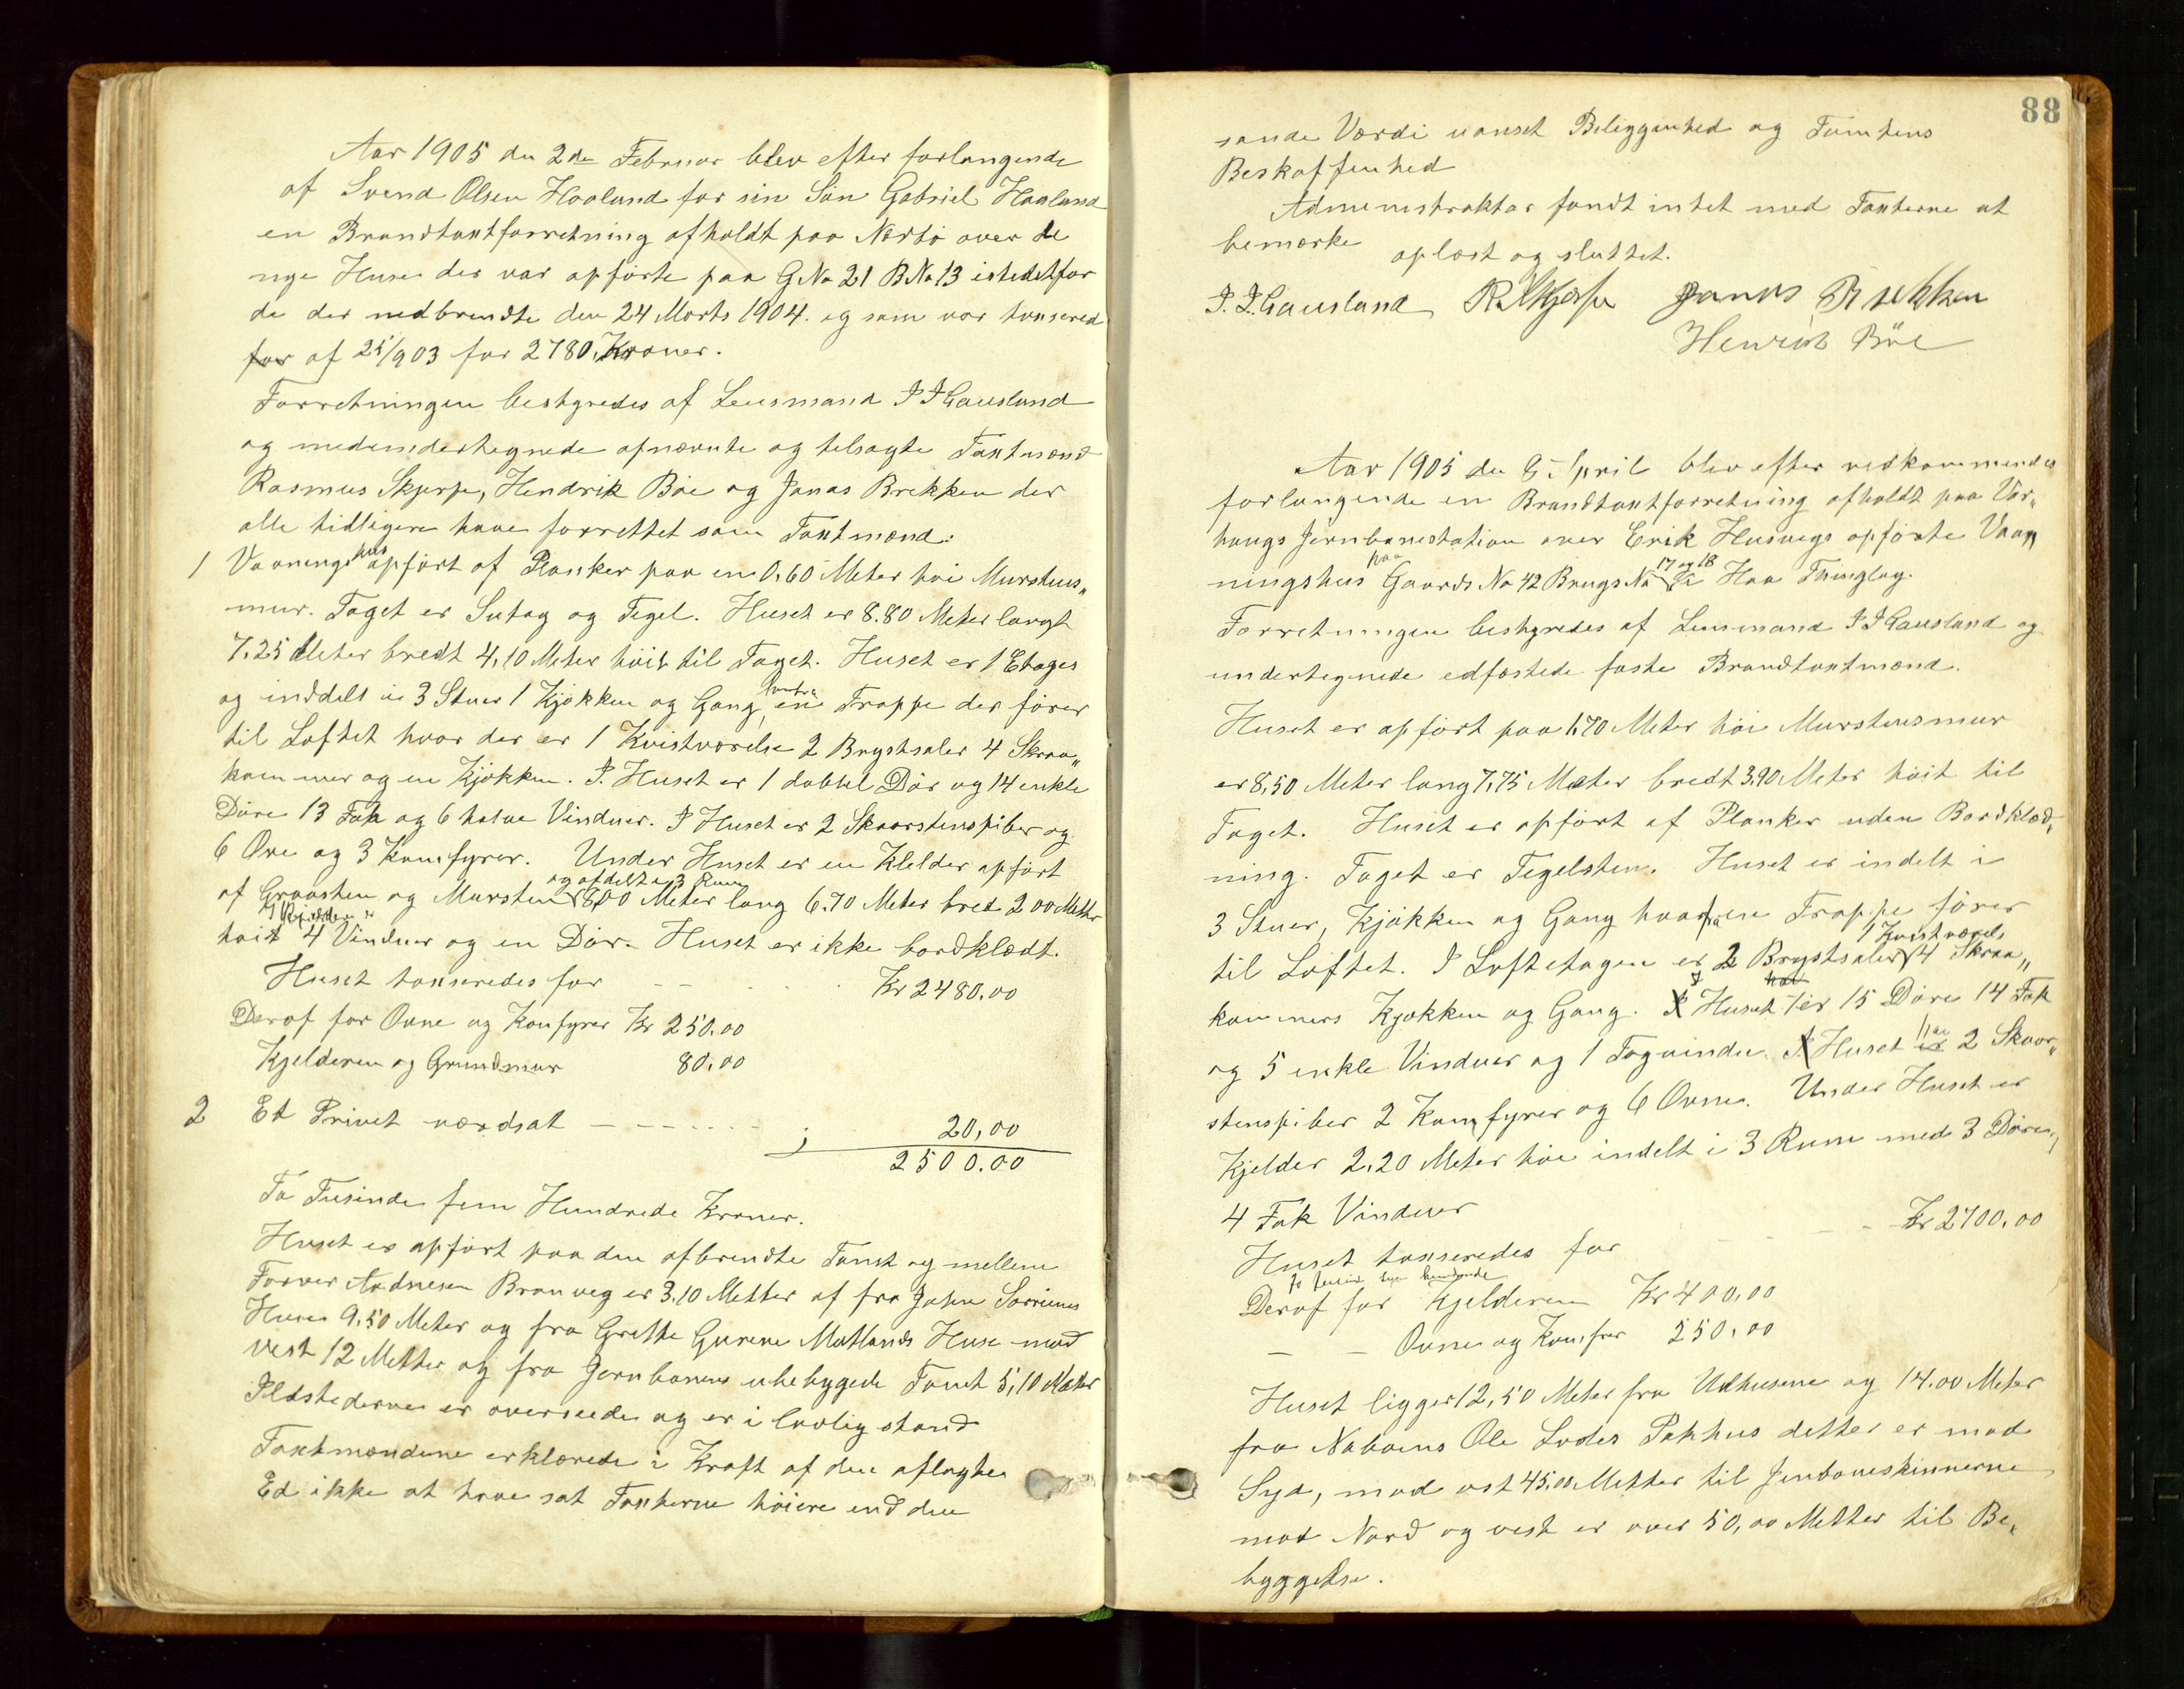 Aar 1905 den 2den Februar blev efter forlangende
af Svend Olsen Haaland for sin Søn Gabriel Haaland
en Brandtaxtforretning afholdt paa Nærbø over de
nye Huse der var opførte paa GNo 21 BNo 13 istedetfor
de der nedbrendte den 24 Marts 1904. og som var taxered
for af 25/903 for 2780, Kroner.
Forretningen bestyredes af Lensmand I I Gausland
og medundertegnede opnævnte og tilsagte Taxtmænd
Rasmus Skjerpe, Hendrik Bøe og Jonas Brekken der
alle tidligere have forrettet som Taxtmænd:
1 Vaaningshus opført af Planker paa en 0,60 Meter høi Murstens„
mur. Taget er Sutag og Tegel. Huset er 8.80 Meter langt
7,25 Meter bredt 4,10 Meter høit til Taget. Huset er 1 Etages
og inddelt i 3 Stuer 1 Kjøkken og Gang, hvorfra en Trappe der fører
til Loftet hvor der er 1 Kvistværelse 2 Brystsaler 4 Skraa„
kammer og en Kjøkken. I Huset er 1 dobbel Dør og 14 enkle
Døre 13 Fak og 6 halve Vinduer. I Huset er 2 Skorstenspiber og
6 Ovne og 3 Komfyrer. Under Huset er en Kjelder opført
af Graasten og Mursten og afdelt i 3 Rum 8,00 Meter lang 6.70 Meter bred 2 00 Metter
høit I Kjelderen er 4 Vinduer og en Dør. Huset er ikke bordklædt.
Huset taxeredes for - - . . . Kr 2480.00
Deraf for Ovne og Konfyrer Kr 250.00
Kjelderen og Grundmur 80.00
2 Et Privet værdsat - - - - - - 20,00
2500.00
To Tusinde fem Hundrede Kroner.
Huset er opført paa den afbrendte Tomt og mellem
Farver Aadnesen Bronveg er 3,10 Metter af fra Johan Sørines
Huse 9,50 Meter og fra Grethe Gurene Motlands Huse mod
vest 12 Metter og fra Jernbanens ubebygede Tomt 5,10 Metter
Ildstederne er overseede og er i lovlig stand
Taxtmændene erklærede i Kraft af den aflagte
Ed ikke at have sat Taxterne høiere end den
88
sande Værdi uanset Beliggenhed og Tomtens
Beskaffenhed
Administraktor fandt intet med Taxterne at
bemærke
oplæst og sluttet.
I. I. Gausland R Skjerpe Jonas Brekken
Henrik Böe
Aar 1905 den 8 April blev efter vedkommendes
forlangende en Brandtaxtforretning afholdt paa Var„
haugs Jernbanestation over Erik Husvegs opførte Vaan
ningshus paa Gaards No 42 Brugs No 17 og 18 i Haa Thinglag.
Forretningen bestyredes af Lensmand I I Gausland og
undertegnede edfæstede faste Brandtaxtmænd.
Huset er opført paa 1,70 Meter høi Murstensmur
er 8,50 Meter lang 7,75 Meter bredt 3,90 Meter høit til
Taget. Huset er opført af Planker uden Bordklæd„
ning. Taget er Tegelsten. Huset er indelt i
3 Stuer, Kjøkken og Gang hvorfra en Trappe fører
til Loftet. I Loftetagen er 2 Brystsaler 1 Kvistværels 4 Skraa„
kammers Kjøkken og Gang. I Huset er 15 Døre 14 Fak
og 5 enkle Vinduer og 1 Tagvindu. Huset har 2 Skaar„
stenspiber 2 Komfyrer og 6 Ovne. Under Huset er
Kjelder 2,20 Meter høi indelt i 3 Rum med 3 Døre,
4 Fak Vinduer
Huset taxeredes for - - - - Kr 2700,00
to tusind syv hundrede
Deraf for Kjelderen Kr 400,00
- - Ovne og Komfrer 250,00
Huset ligger 12,50 Meter fra Udhusene og 14.00 Meter
fra Naboens Ole Lodes Pakhus dette er mod
Syd, mod øst 45.00 Metter til Jenbaneskinnerne
mod Nord og vest er over 50,00 Metter til Be„
byggelse.